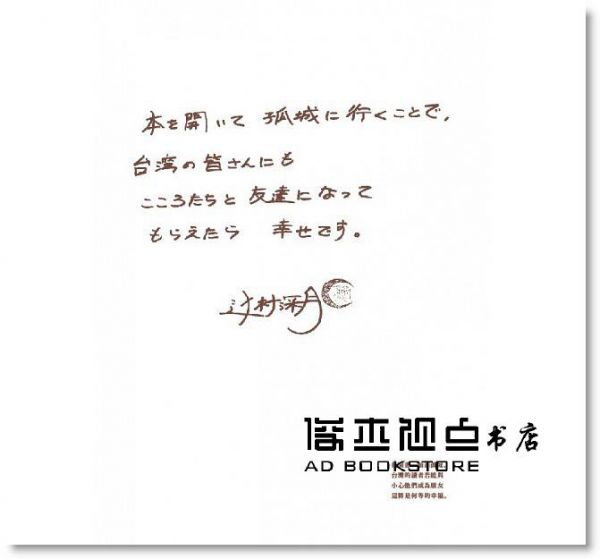 本を開いて 孤城に行くことで、
台湾の皆さんにも
こころたちと友達になって
もらえたら 幸せです。
辻村深月
俊杰视点书店
AD BOOKSTORE
台灣的讀者若能與
小心他們成為朋友
這將是何等的幸福。